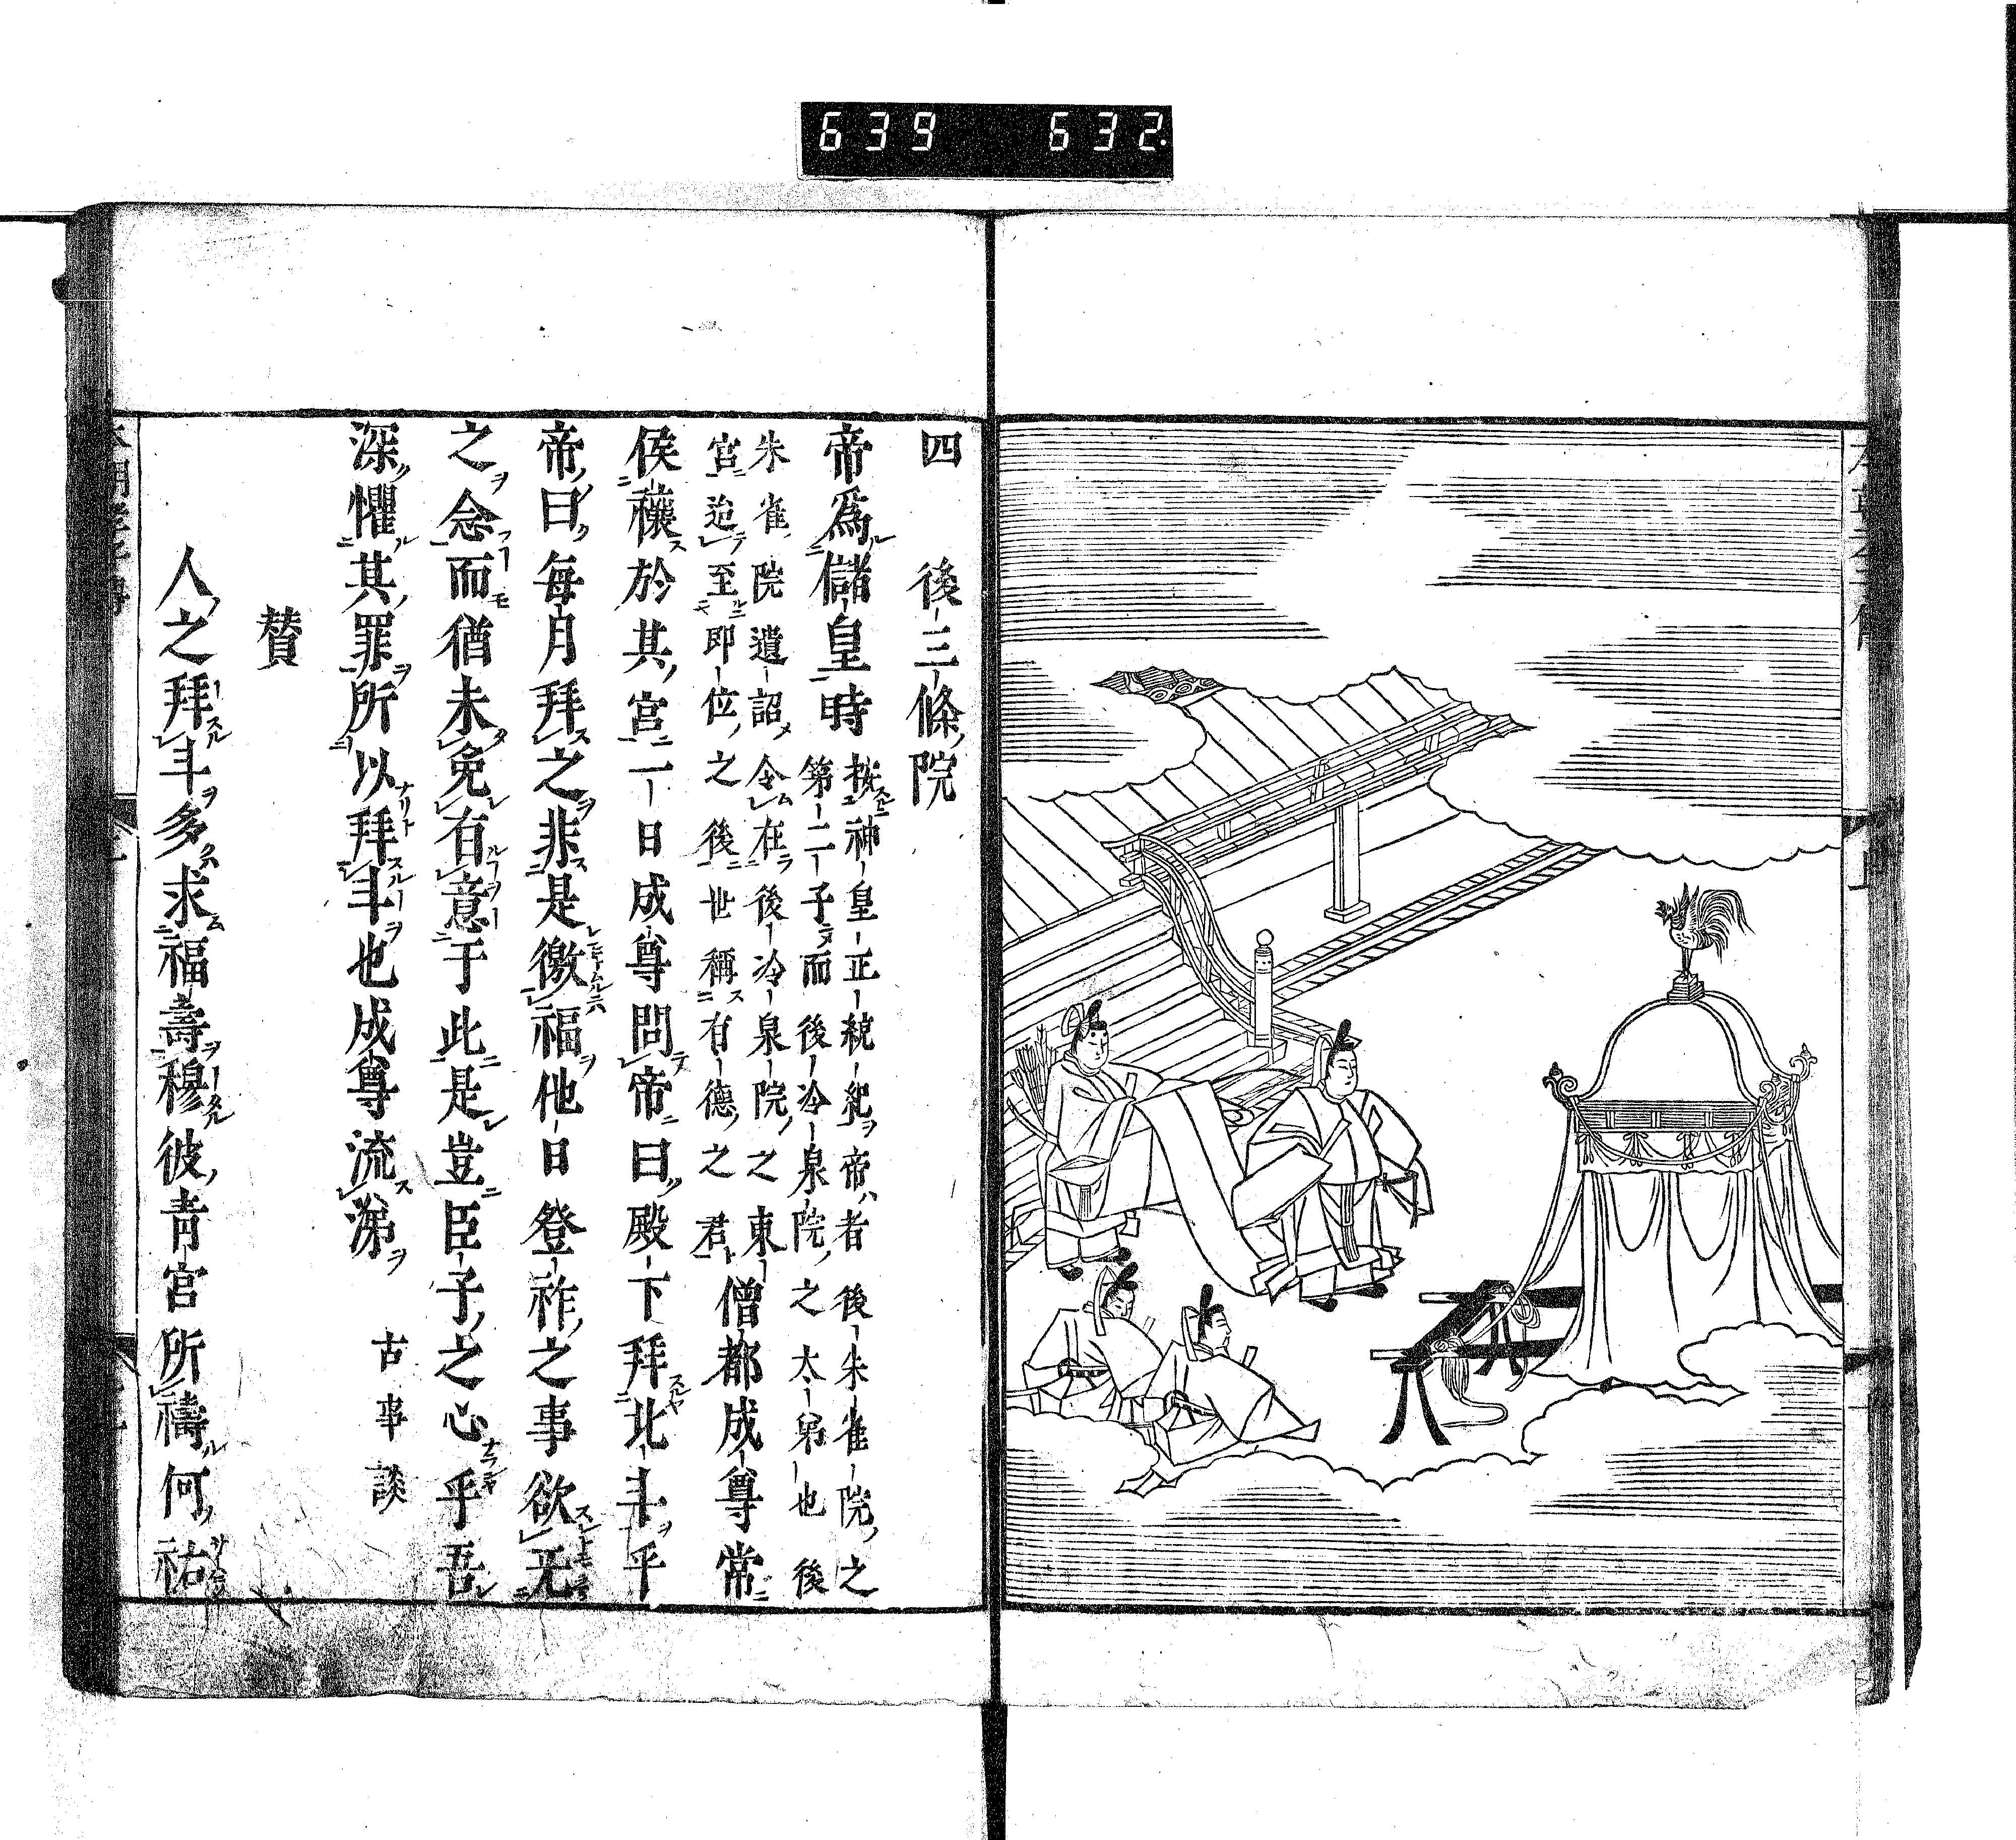 639 632
四 後三條院
帝爲儲皇時
按神皇正統紀帝者後朱雀院之
第二子而後冷泉院之太弟也後
朱雀院遺詔令在後冷泉院之東
宮迨至即位之後世稱有德之君
僧都成尊常
侯禳於其宮一日成尊問帝曰殿下拜北斗乎
帝曰每月拜之非是徼福他日登祚之事欲无
之念而猶未免有意于此是豈臣子之心乎吾
深懼其罪所以拜斗也成尊流涕 古事談
贊
人之拜斗多求福壽穆彼青宮所禱何祐